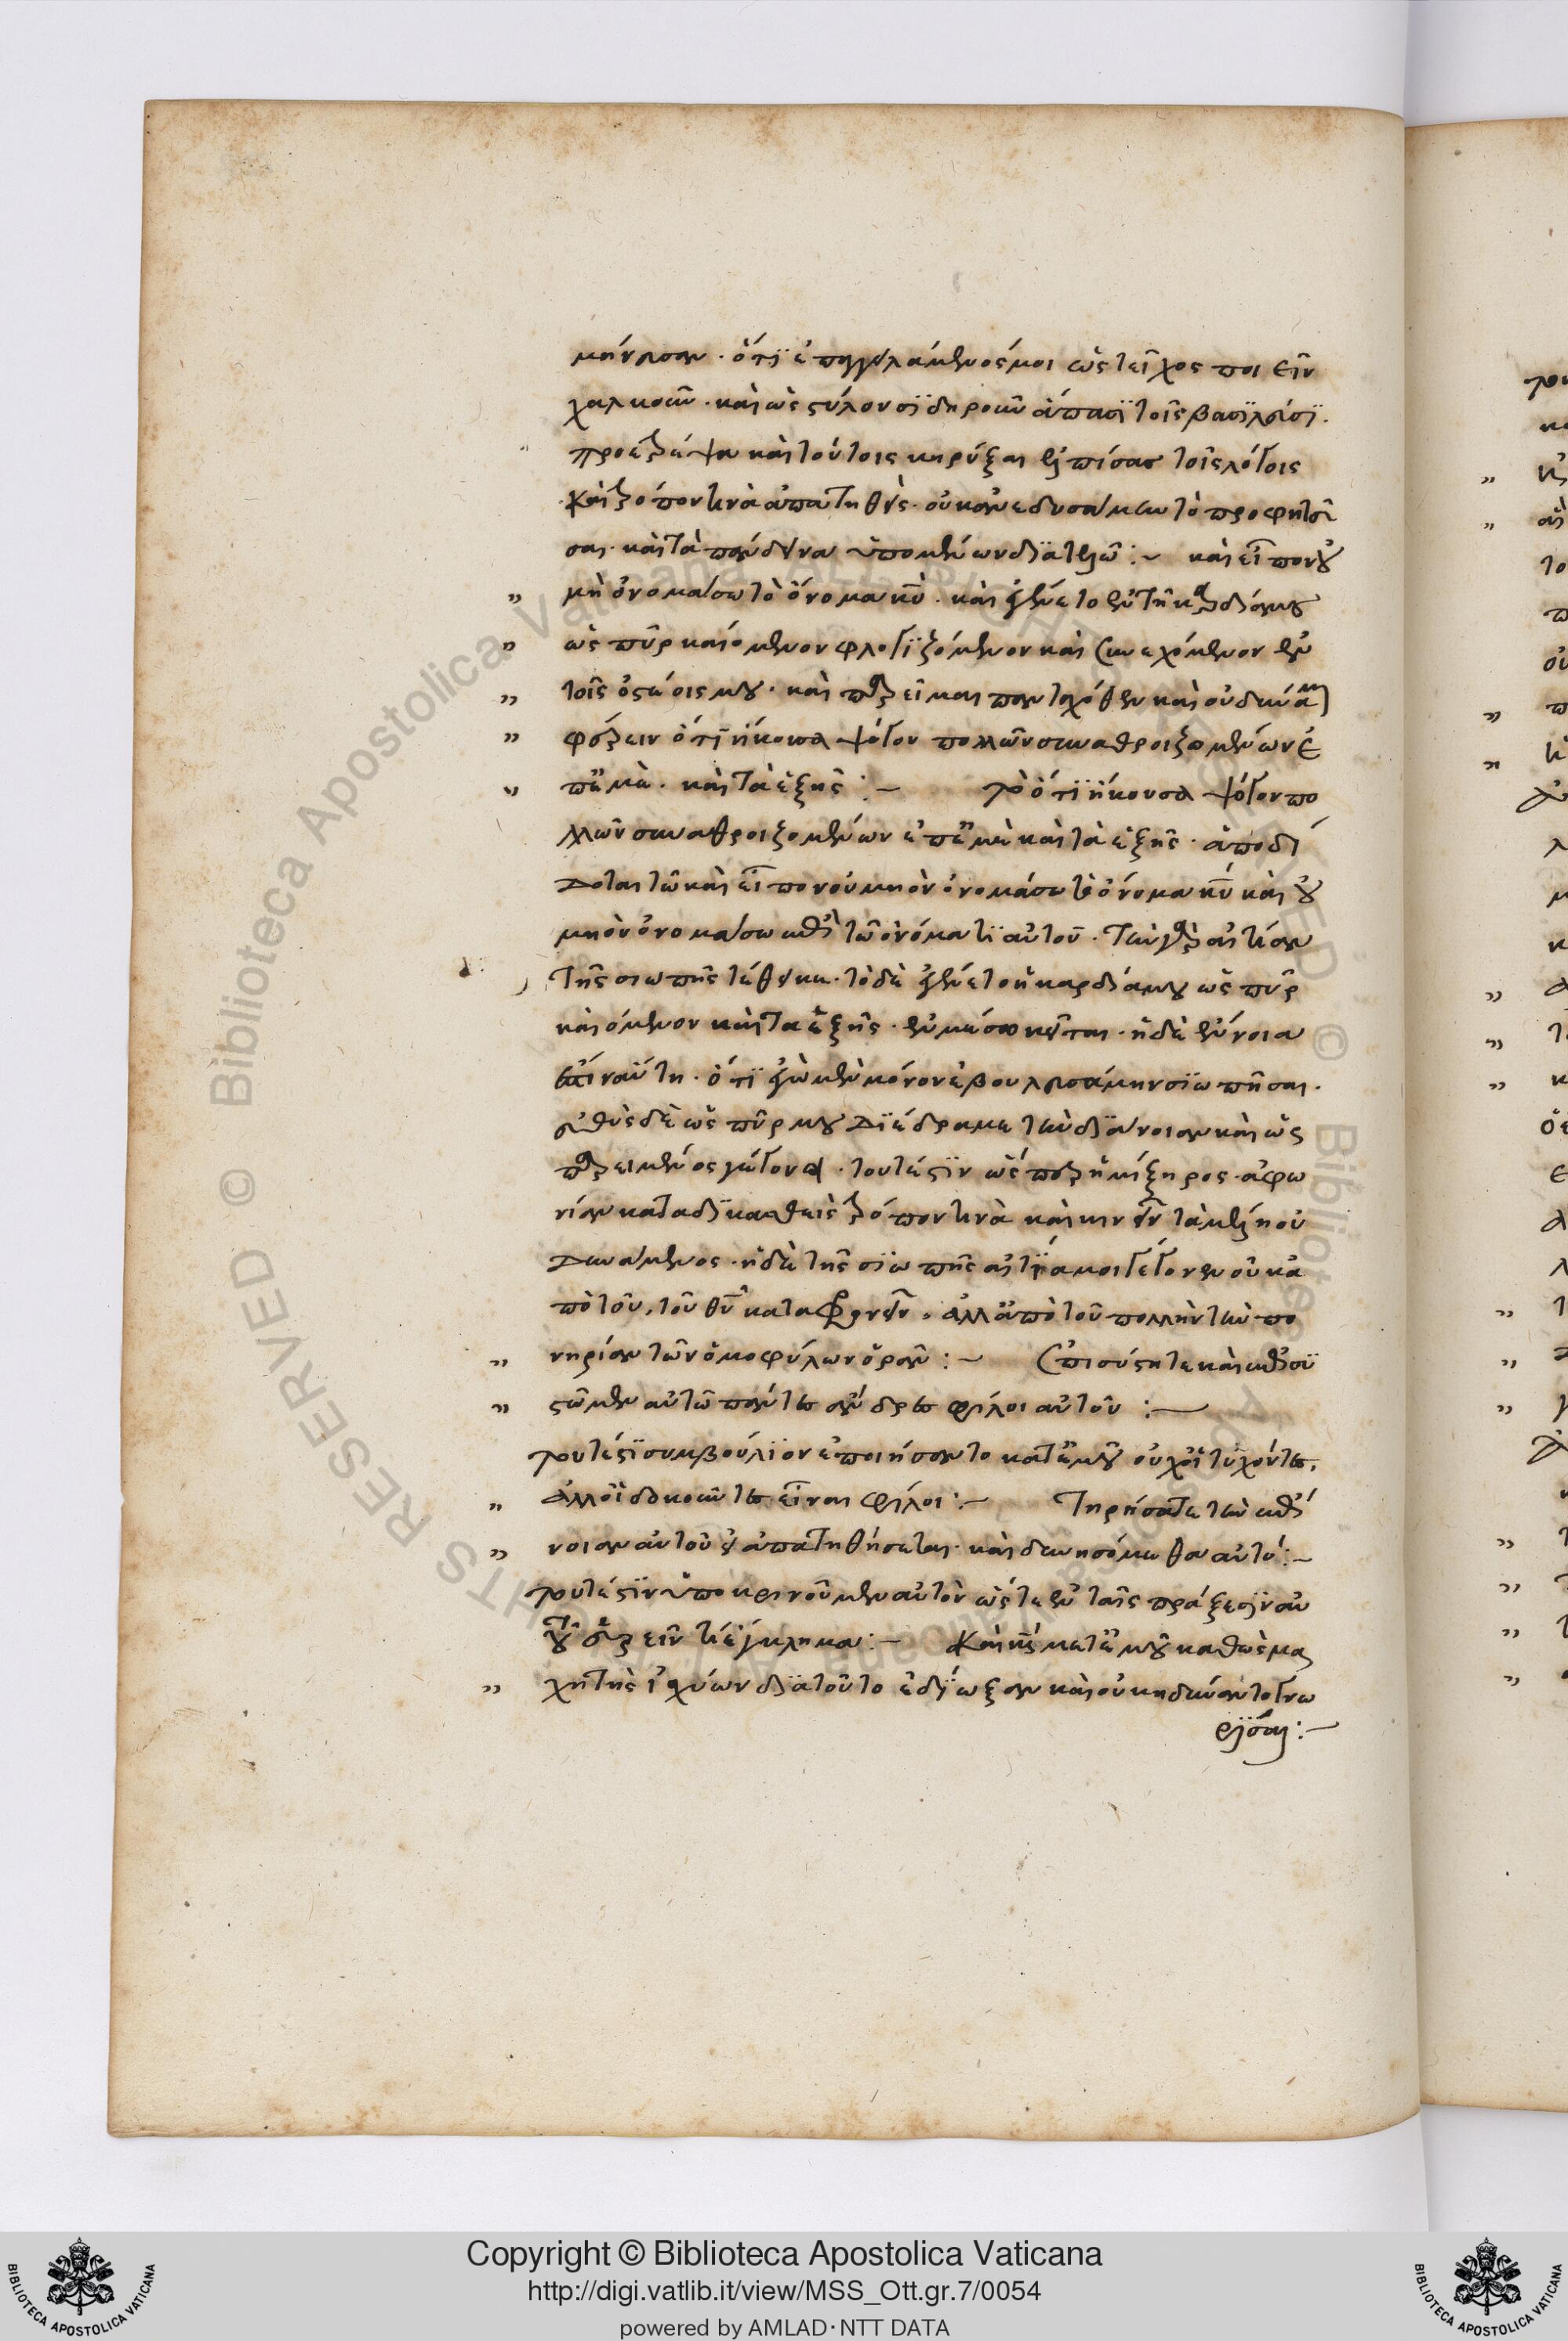 μήνυσαν. ὅτι ἐπαγγειλάμενός μοι ὡς τεῖχος ποιεῖν
χαλκοῦν. καὶ ὡς στύλον σιδηροῦν ἅπασι τοῖς βασιλεῦσι.
προέτρεψα καὶ τούτοις κηρύξαι πείσας τοῖς λόγοις
καὶ τρόπον τινὰ ἀπατηθεὶς. οὐκ ἀνεδυσάμην τὸ προφητεῦ
σαι. καὶ τὰ πάνδεινα ὑπομένων διατελῶ :~ καὶ εἶπον οὐ
μὴ ὀνομάσω τὸ ὄνομα κυ. καὶ ἐγένετο ἐν τῇ καρδίᾳ μου
ὡς πῦρ καιόμενον φλογιζόμενον καὶ συνεχόμενον ἐν
τοῖς ὀστέοις μου. καὶ παρεῖμαι πανταχόθεν καὶ οὐ δύναμαι
φέρειν ὅτι ἤκουσα ψόγον πολλῶν συναθροιζομένων ἐ
π' ἐμὲ. καὶ τὰ ἑξῆς :~ τὸ ὅτι ἤκουσα ψόγον πο
λλῶν συναθροιζομένων ἐπ' ἐμὲ καὶ τὰ ἑξῆς. ἀποδί
δοται τῶ καὶ εἶπον οὐ μὴ ὀνομάσω τὸ ὄνομα κυ καὶ οὐ
μὴ ὀνομάσω ἐπὶ τῶ ὀνόματι αὐτοῦ. τὴν γὰρ αἰτίαν
τῆς σιωπῆς τέθεικε. τὸ δὲ ἐγένετο ἡ καρδία μου ὡς πῦρ
καιόμενον καὶ τὰ ἑξῆς. ἐν μέσω κεῖται. ἡ δὲ ἔννοια
αὕτη. ὅτι ἐγὼ μὲν μόνον ἐβουλευσάμην σιωπῆσαι.
εὐθὺς δὲ ὡς πῦρ μου διέδραμε τὴν διάνοιαν καὶ ὡς
παρειμένος γέγονα. τουτέστιν ὥσπερ ἡμίξηρος. ἀφω
νίαν καταδικασθεὶς τρόπον τινὰ καὶ κινεῖν τὰ μέλη οὐ
δυνάμενος. ἡ δὲ τῆς σιωπῆς αἰτία μοι γέγονεν οὐκ ἀ
πὸ τοῦ, τοῦ θυ καταφρονεῖν. ἀλλ' ἀπὸ τοῦ πολλὴν τὴν πο
νηρίαν τῶν ὁμοφύλων ὁρᾶν :~ ἐπισύστητε καὶ ἐπισυ
στῶμεν αὐτῶ πάντες ἄνδρες φίλοι αὐτοῦ :~
τουτέστι συμβούλιον ἐποιήσαντο κατ' ἐμοῦ οὐχ οἱ τυχόντες,
ἀλλ' οἱ δοκοῦντες εἶναι φίλοι :~ τηρήσατε τὴν ἐπί
νοιαν αὐτοῦ εἰ ἀπατηθήσεται. καὶ δυνησόμεθα αὐτῷ :~
τουτέστιν ὑποκρινοῦμεν αὐτὸν ὥστε ἐν ταῖς πράξεσιν αὐ
τοῦ εὑρεῖν τι ἔγκλημα :~ καὶ κς μετ' ἐμοῦ καθὼς μα
χητὴς ἰσχύων διὰ τοῦτο ἐδίωξαν καὶ οὐκ ἠδύναντο γνω
ρίσαι :~